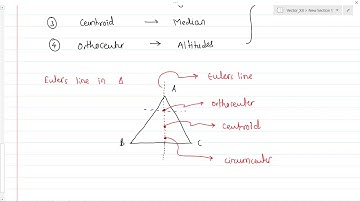 Vector_XII > New Section 1
③ Centroid → Median
④ Orthocenter → Altitudes
Eulers line in Δ
Eulers line
A
orthocenter
centroid
B
C
circumcenter